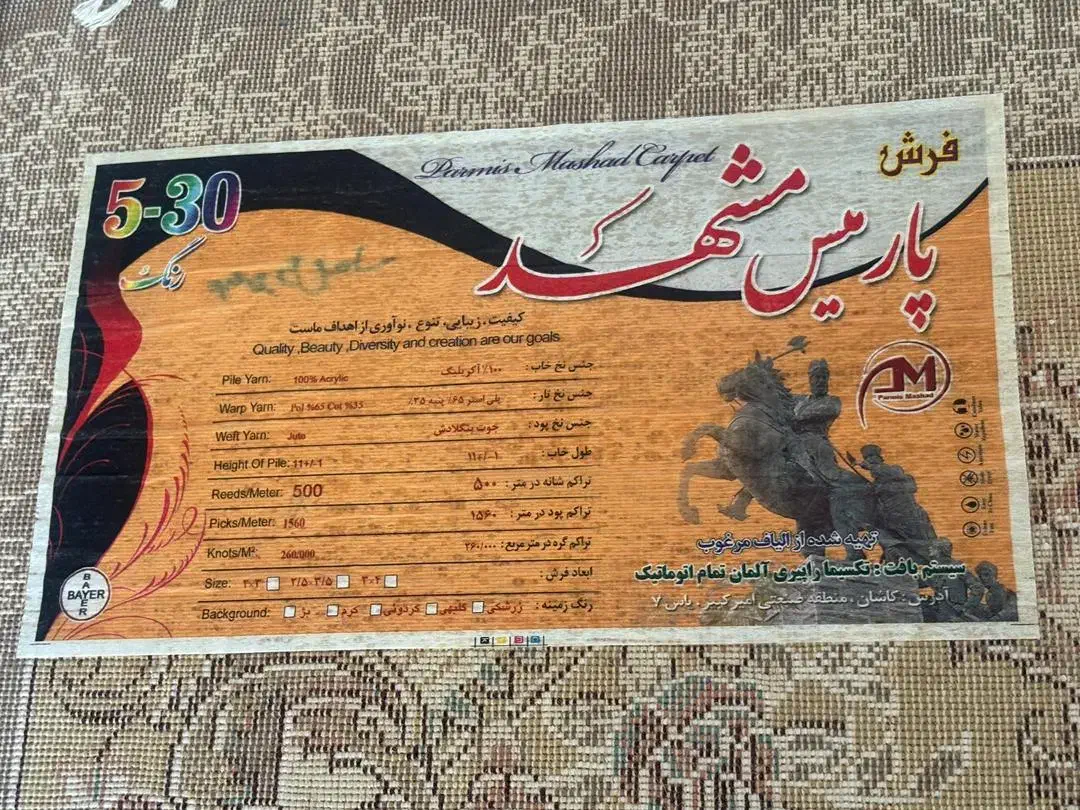 Parmis Mashad Carpet
فرش
پارمیس مشهد
5-30
رنگ
کیفیت، زیبایی، تنوع، نوآوری از اهداف ماست
Quality ,Beauty ,Diversity and creation are our goals
Pile Yarn: 100% Acrylic ۱۰۰٪ آکریلیک جنس نخ خاب :
Warp Yarn: Pol %65 Cot %35 پلی استر ۶۵٪ پنبه ۳۵٪ جنس نخ تار :
Weft Yarn: Jute جوت بنگلادش جنس نخ پود :
Height Of Pile: 11+/-1 ۱۱+/-۱ طول خاب :
Reeds/Meter: 500 ۵۰۰ تراکم شانه در متر :
Picks/Meter: 1560 ۱۵۶۰ تراکم پود در متر :
Knots/M²: 260/000 ۲۶۰/۰۰۰ تراکم گره در متر مربع :
Size: ۲×۳ ۲/۵×۳/۵ ۳×۴ ابعاد فرش :
Background: بژ کرم گردوئی گلبهی زرشکی رنگ زمینه :
PM
Parmis Mashad
تهیه شده از الیاف مرغوب
سیستم بافت : تکسیما راپیری آلمان تمام اتوماتیک
آدرس : کاشان ، منطقه صنعتی امیرکبیر ، یاس ۷
BAYER
BAYER